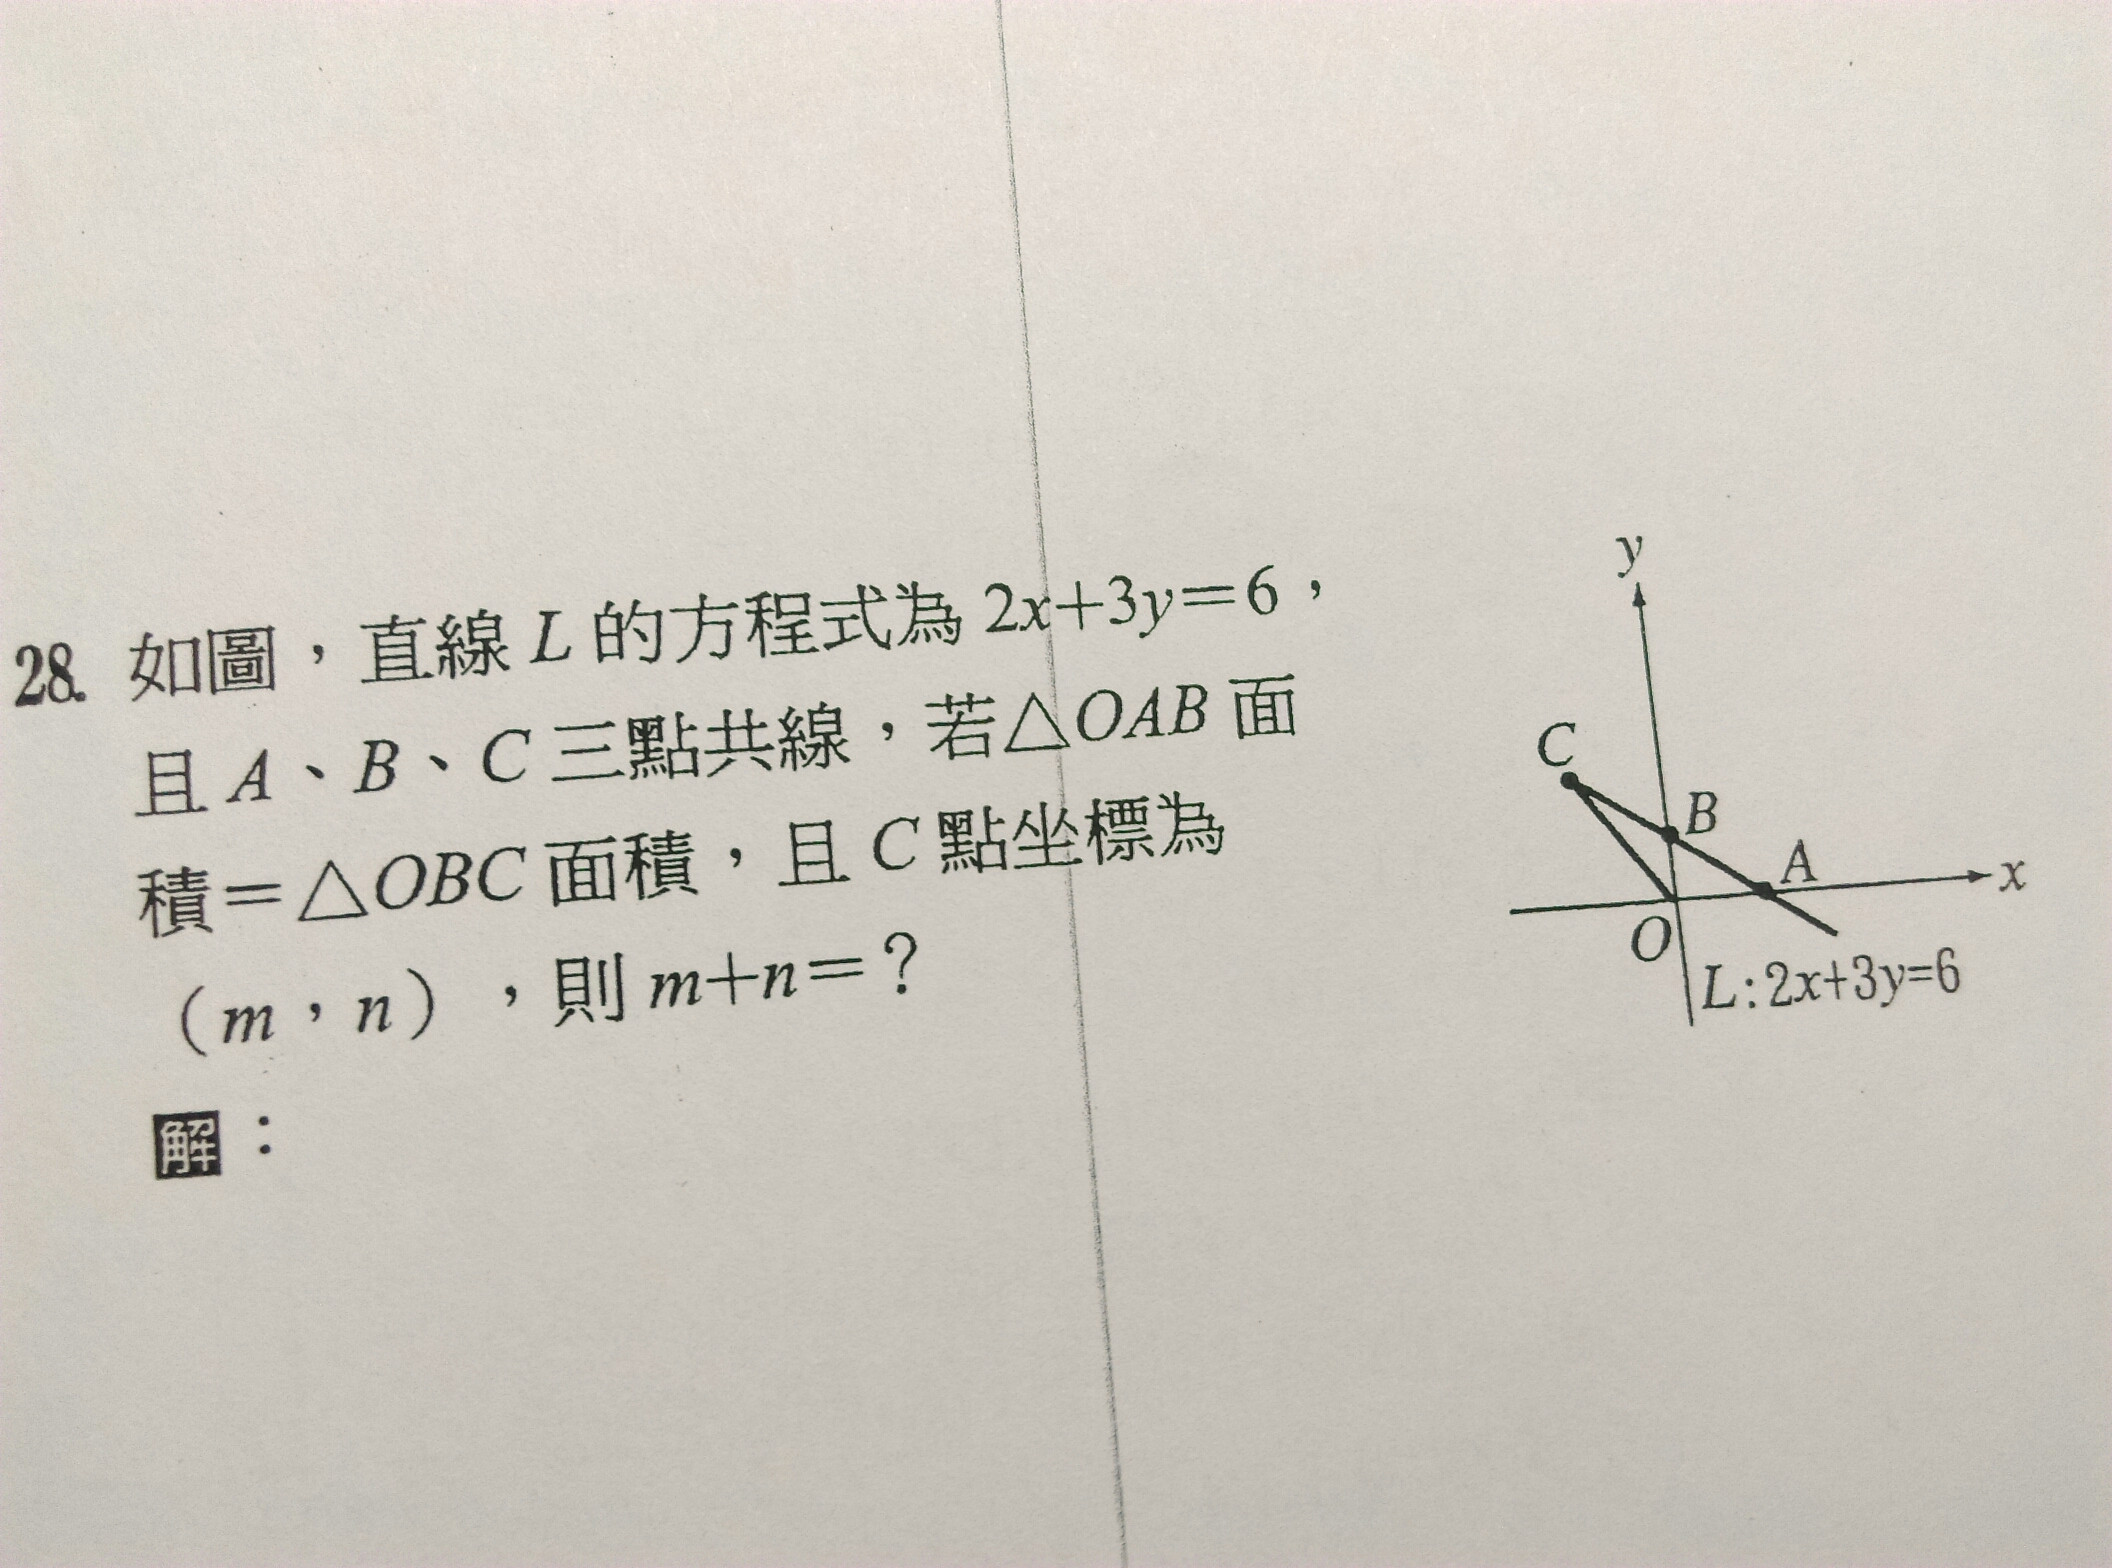 28. 如圖，直線 L 的方程式為 2x+3y=6，
且 A、B、C 三點共線，若△OAB 面
積=△OBC 面積，且 C 點坐標為
（m，n），則 m+n=？
解：
y
C
B
A
x
O
L:2x+3y=6